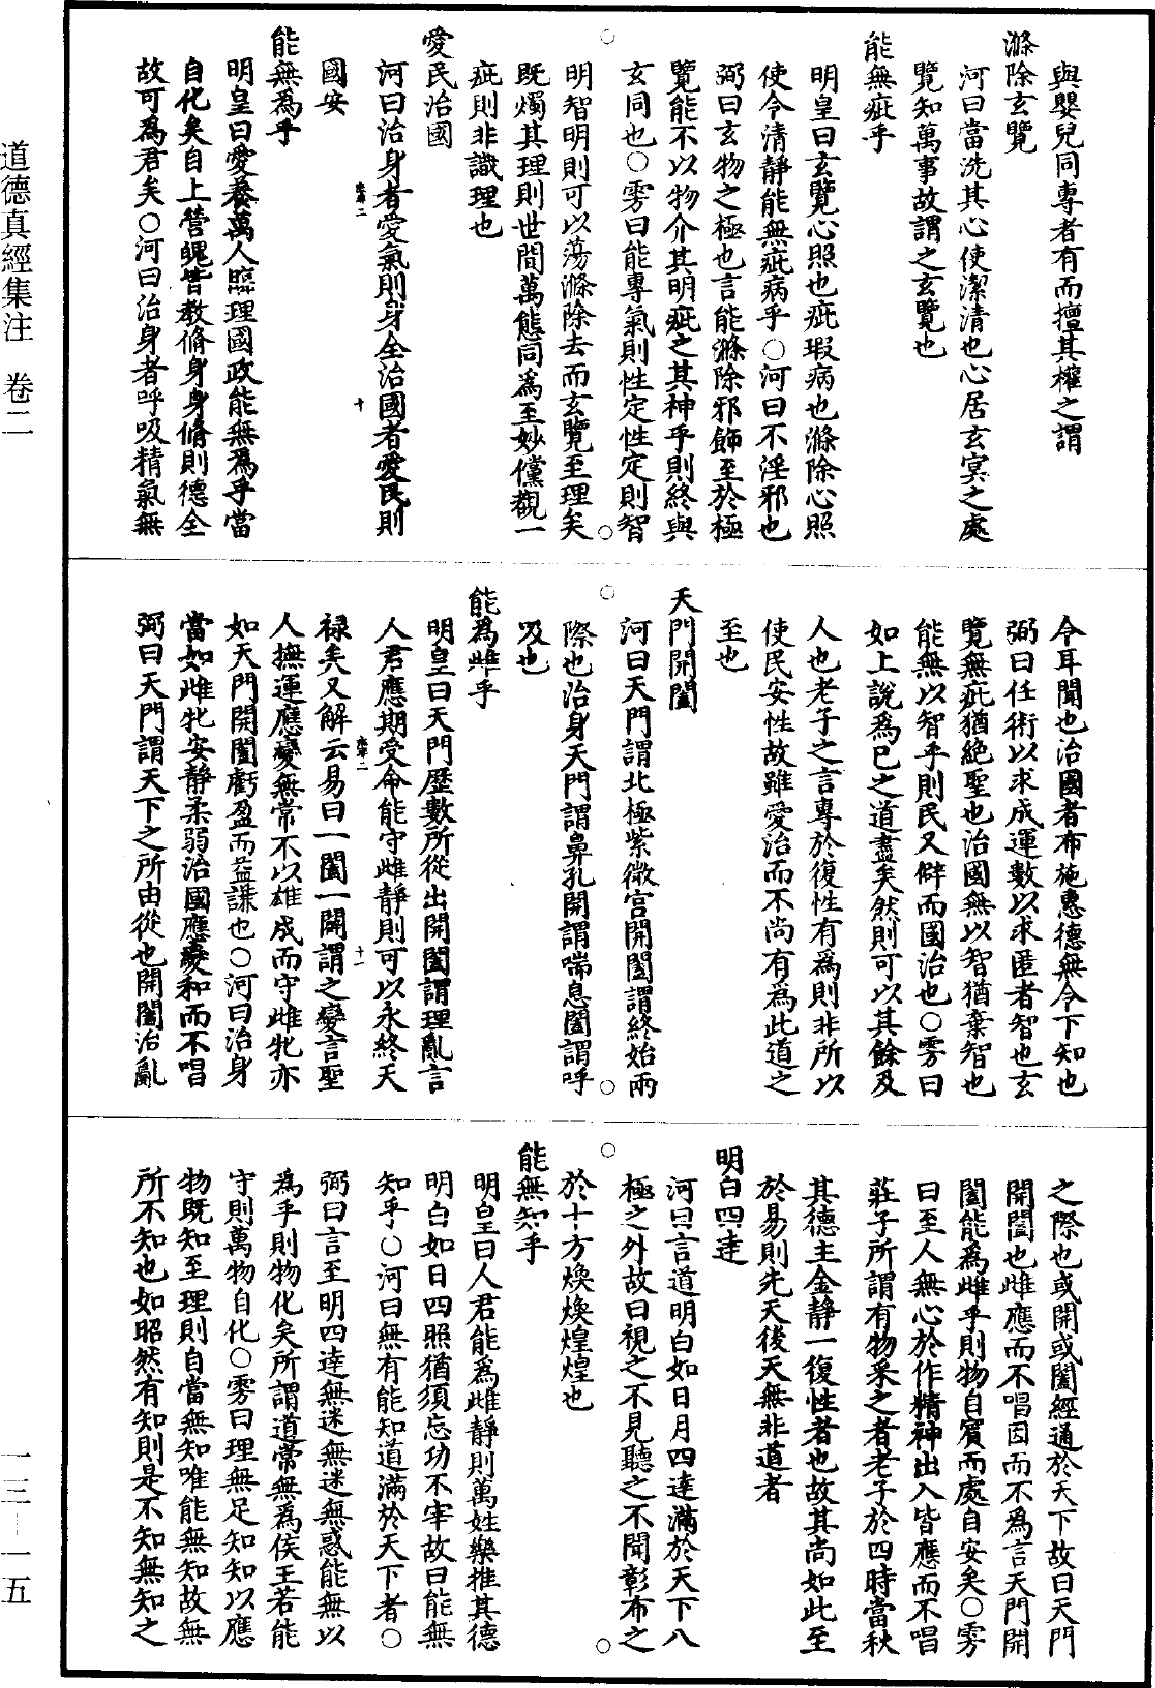 道德真經集注 卷二
一三—一五
與嬰兒同專者有而擅其權之謂
滌除玄覽
河曰當洗其心使潔清也心居玄冥之處
覽知萬事故謂之玄覽也
能無疵乎
明皇曰玄覽心照也疵瑕病也滌除心照
使令清靜能無疵病乎○河曰不淫邪也
弼曰玄物之極也言能滌除邪飾至於極
覽能不以物介其明疵之其神乎則終與
玄同也○雱曰能專氣則性定性定則智
明智明則可以蕩滌除去而玄覽至理矣
既燭其理則世間萬態同為至妙儻觀一
疵則非識理也
愛民治國
河曰治身者愛氣則身全治國者愛民則
國安
能無為乎
明皇曰愛養萬人臨理國政能無為乎當
自化矣自上營魄皆教脩身身脩則德全
故可為君矣○河曰治身者呼吸精氣無
令耳聞也治國者布施惠德無令下知也
弼曰任術以求成運數以求匿者智也玄
覽無疵猶絕聖也治國無以智猶棄智也
能無以智乎則民又僻而國治也○雱曰
如上說為已之道盡矣然則可以其餘及
人也老子之言專於復性有為則非所以
使民安性故雖愛治而不尚有為此道之
至也
天門開闔
河曰天門謂北極紫微宮開闔謂終始兩
際也治身天門謂鼻孔開謂喘息闔謂呼
吸也
能為雌乎
明皇曰天門歷數所從出開闔謂理亂言
人君應期受命能守雌靜則可以永終天
祿矣又解云易曰一闔一闢謂之變言聖
人撫運應變無常不以雄成而守雌牝亦
如天門開闔虧盈而益謙也○河曰治身
當如雌牝安靜柔弱治國應變和而不唱
弼曰天門謂天下之所由從也開闔治亂
之際也或開或闔經通於天下故曰天門
開闔也雌應而不唱因而不為言天門開
闔能為雌乎則物自賓而處自安矣○雱
曰至人無心於作精神出入皆應而不唱
莊子所謂有物采之者老子於四時當秋
其德主金靜一復性者也故其尚如此至
於易則先天後天無非道者
明白四達
河曰言道明白如日月四達滿於天下八
極之外故曰視之不見聽之不聞彰布之
於十方煥煥煌煌也
能無知乎
明皇曰人君能為雌靜則萬姓樂推其德
明白如日四照猶須忘功不宰故曰能無
知乎○河曰無有能知道滿於天下者○
弼曰言至明四達無迷無迷無惑能無以
為乎則物化矣所謂道常無為侯王若能
守則萬物自化○雱曰理無足知知以應
物既知至理則自當無知唯能無知故無
所不知也如昭然有知則是不知無知之